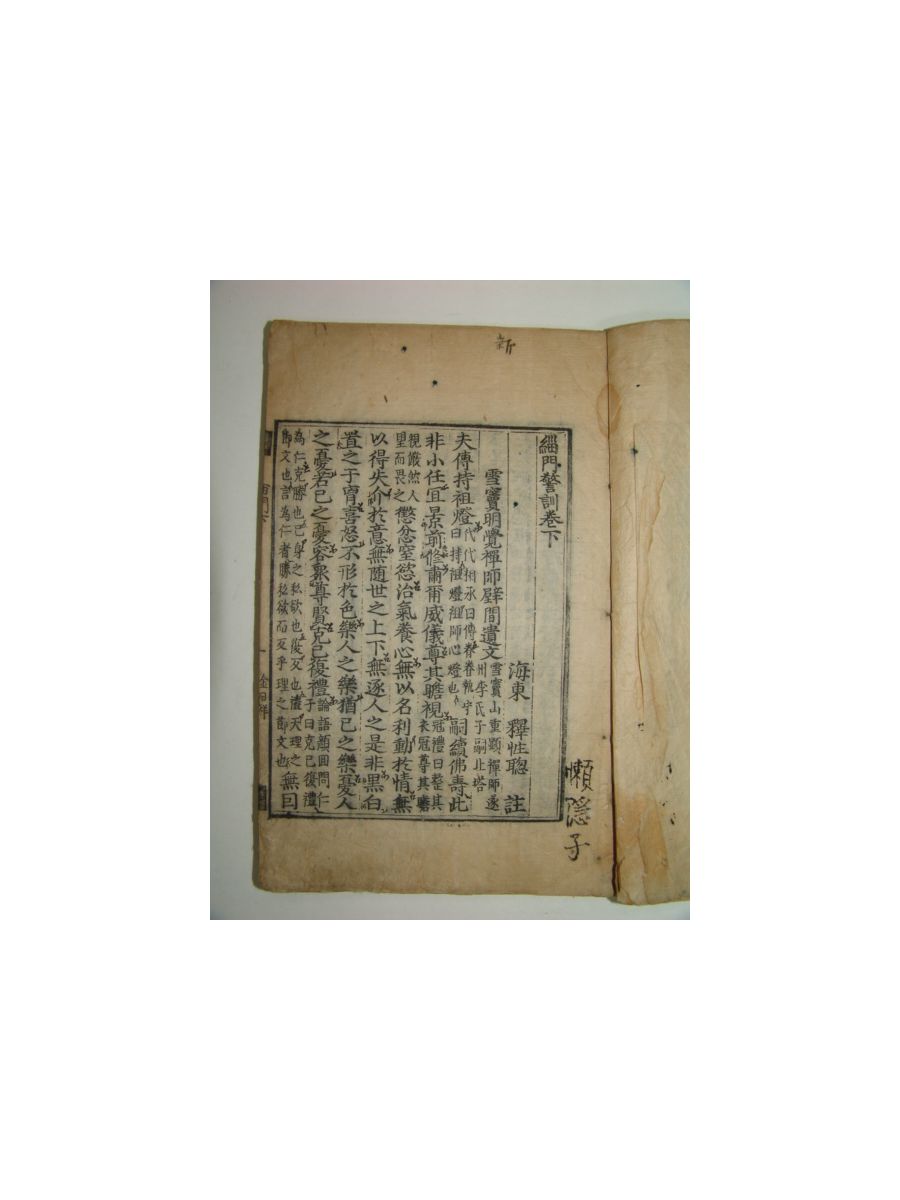 新
緇門警訓卷下
海東 釋性聰 註
懶隱子
雪竇明覺禪師壁間遺文 雪竇山重顯禪師遂州李氏子嗣北塔
夫傳持祖燈 代代相承曰傳眷眷執守曰持祖燈祖師心燈也 嗣續佛壽此
非小任宜景前修肅爾威儀尊其瞻視 冠禮曰整其衣冠尊其瞻
視儼然人望而畏之 懲忿窒慾治氣養心無以名利動於情無
以得失介於意無隨世之上下無逐人之是非黑白
置之于胷喜怒不形於色樂人之樂猶己之樂憂人
之憂若己之憂容衆尊賢克己復禮 論語顔回問仁子曰克己復禮
為仁克勝也己身之私欲也復反也禮天理之節文也言為仁者勝私欲而反乎理之節文也 無因